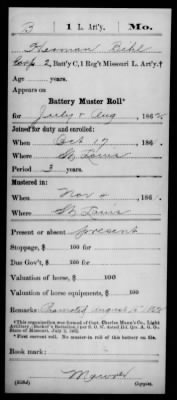 B | 1 L. Art'y. | Mo.
Herman Behl
Corp., Batt'y C, 1 Reg't Missouri L. Art'y.†
Age years.
Appears on
Battery Muster Roll*
for July & Aug, 186
Joined for duty and enrolled:
When Oct 17, 186
Where St. Louis
Period 3 years.
Mustered in:
When Nov, 186
Where St. Louis
Present or absent present
Stoppage, $ 100 for
Due Gov't, $ 100 for
Valuation of horse, $ 100
Valuation of horse equipments, $ 100
Remarks: Promoted August
*This organization was formed of Capt. Charles Mann's Co., Light
Artillery
Missouri
†First current roll. No muster in roll of this battery on file.
Book mark:
Copyist.